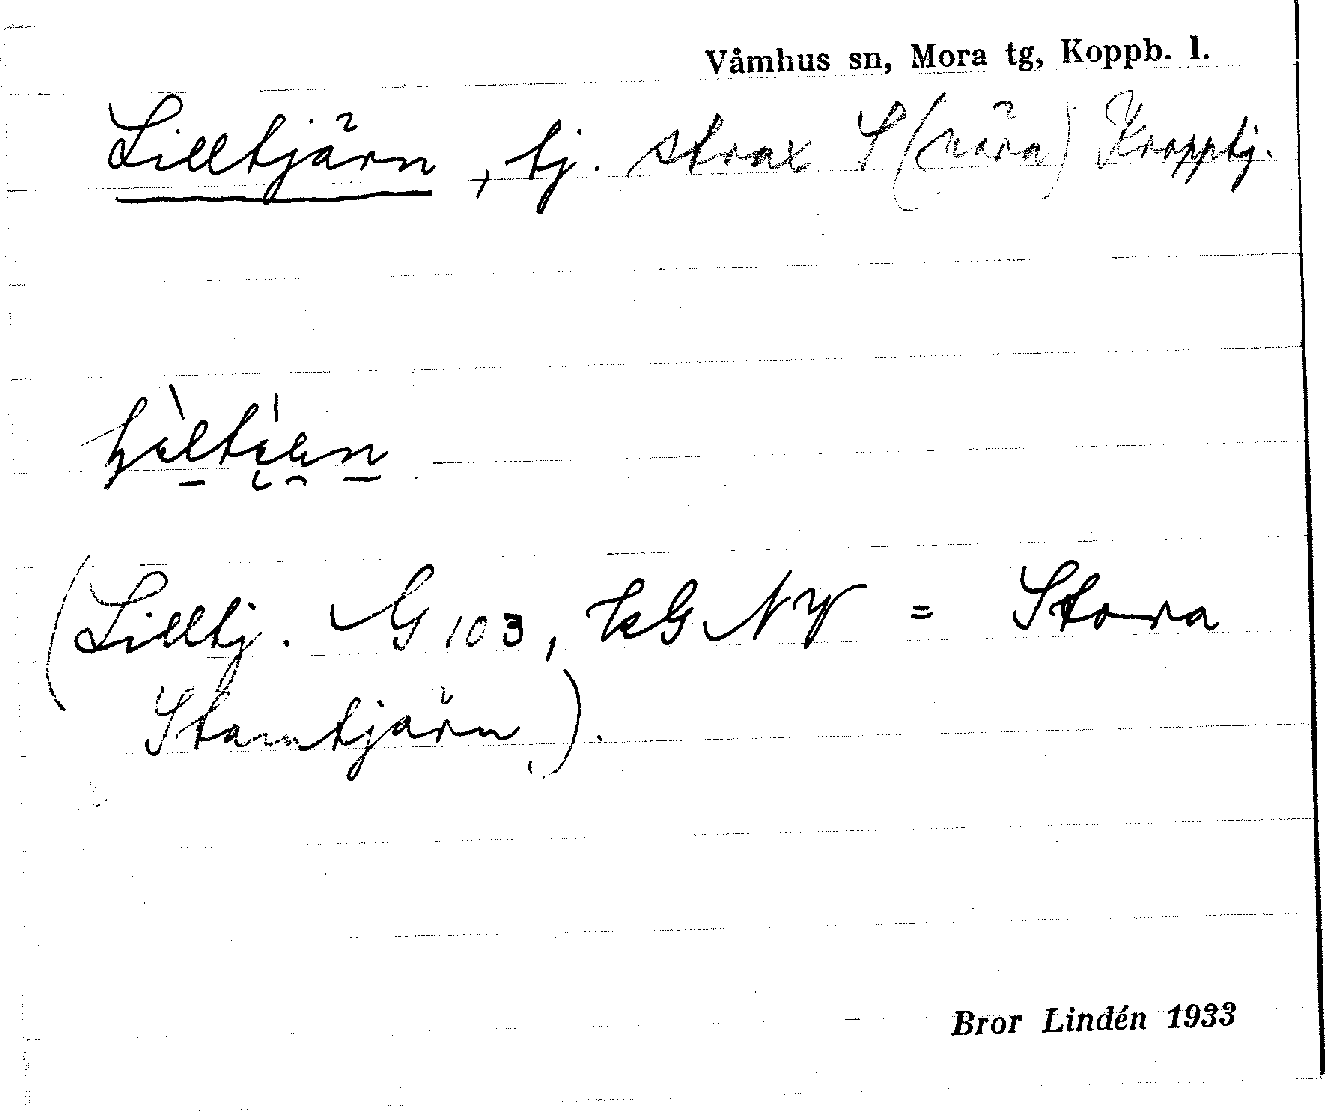 Våmhus sn, Mora tg, Koppb. l.
Lilltjärn, tj. strax S (nära) Kropptj.
(Lilltj. G 103, kG NV = Stora
Stamtjärn).
Bror Lindén 1933